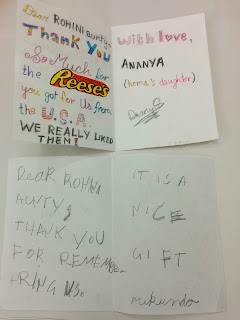 Dear ROHINI aunty,
Thank You
So Much for
the REESE'S
you got for Us from
the U.S.A.
WE REALLY LIKED
THEM!
With love,
ANANYA
(hema's daughter)
DEAR ROHINI
AUNTY,
THANK YOU
FOR REMEMBE-
RING US.
IT IS A
NICE
GIFT
mukunda